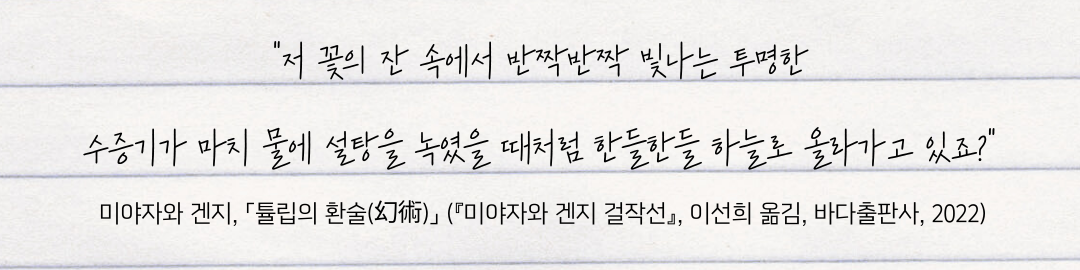 "저 꽃의 잔 속에서 반짝반짝 빛나는 투명한
수증기가 마치 물에 설탕을 녹였을 때처럼 한들한들 하늘로 올라가고 있죠?"
미야자와 겐지, 「튤립의 환술(幻術)」 (『미야자와 겐지 걸작선』, 이선희 옮김, 바다출판사, 2022)